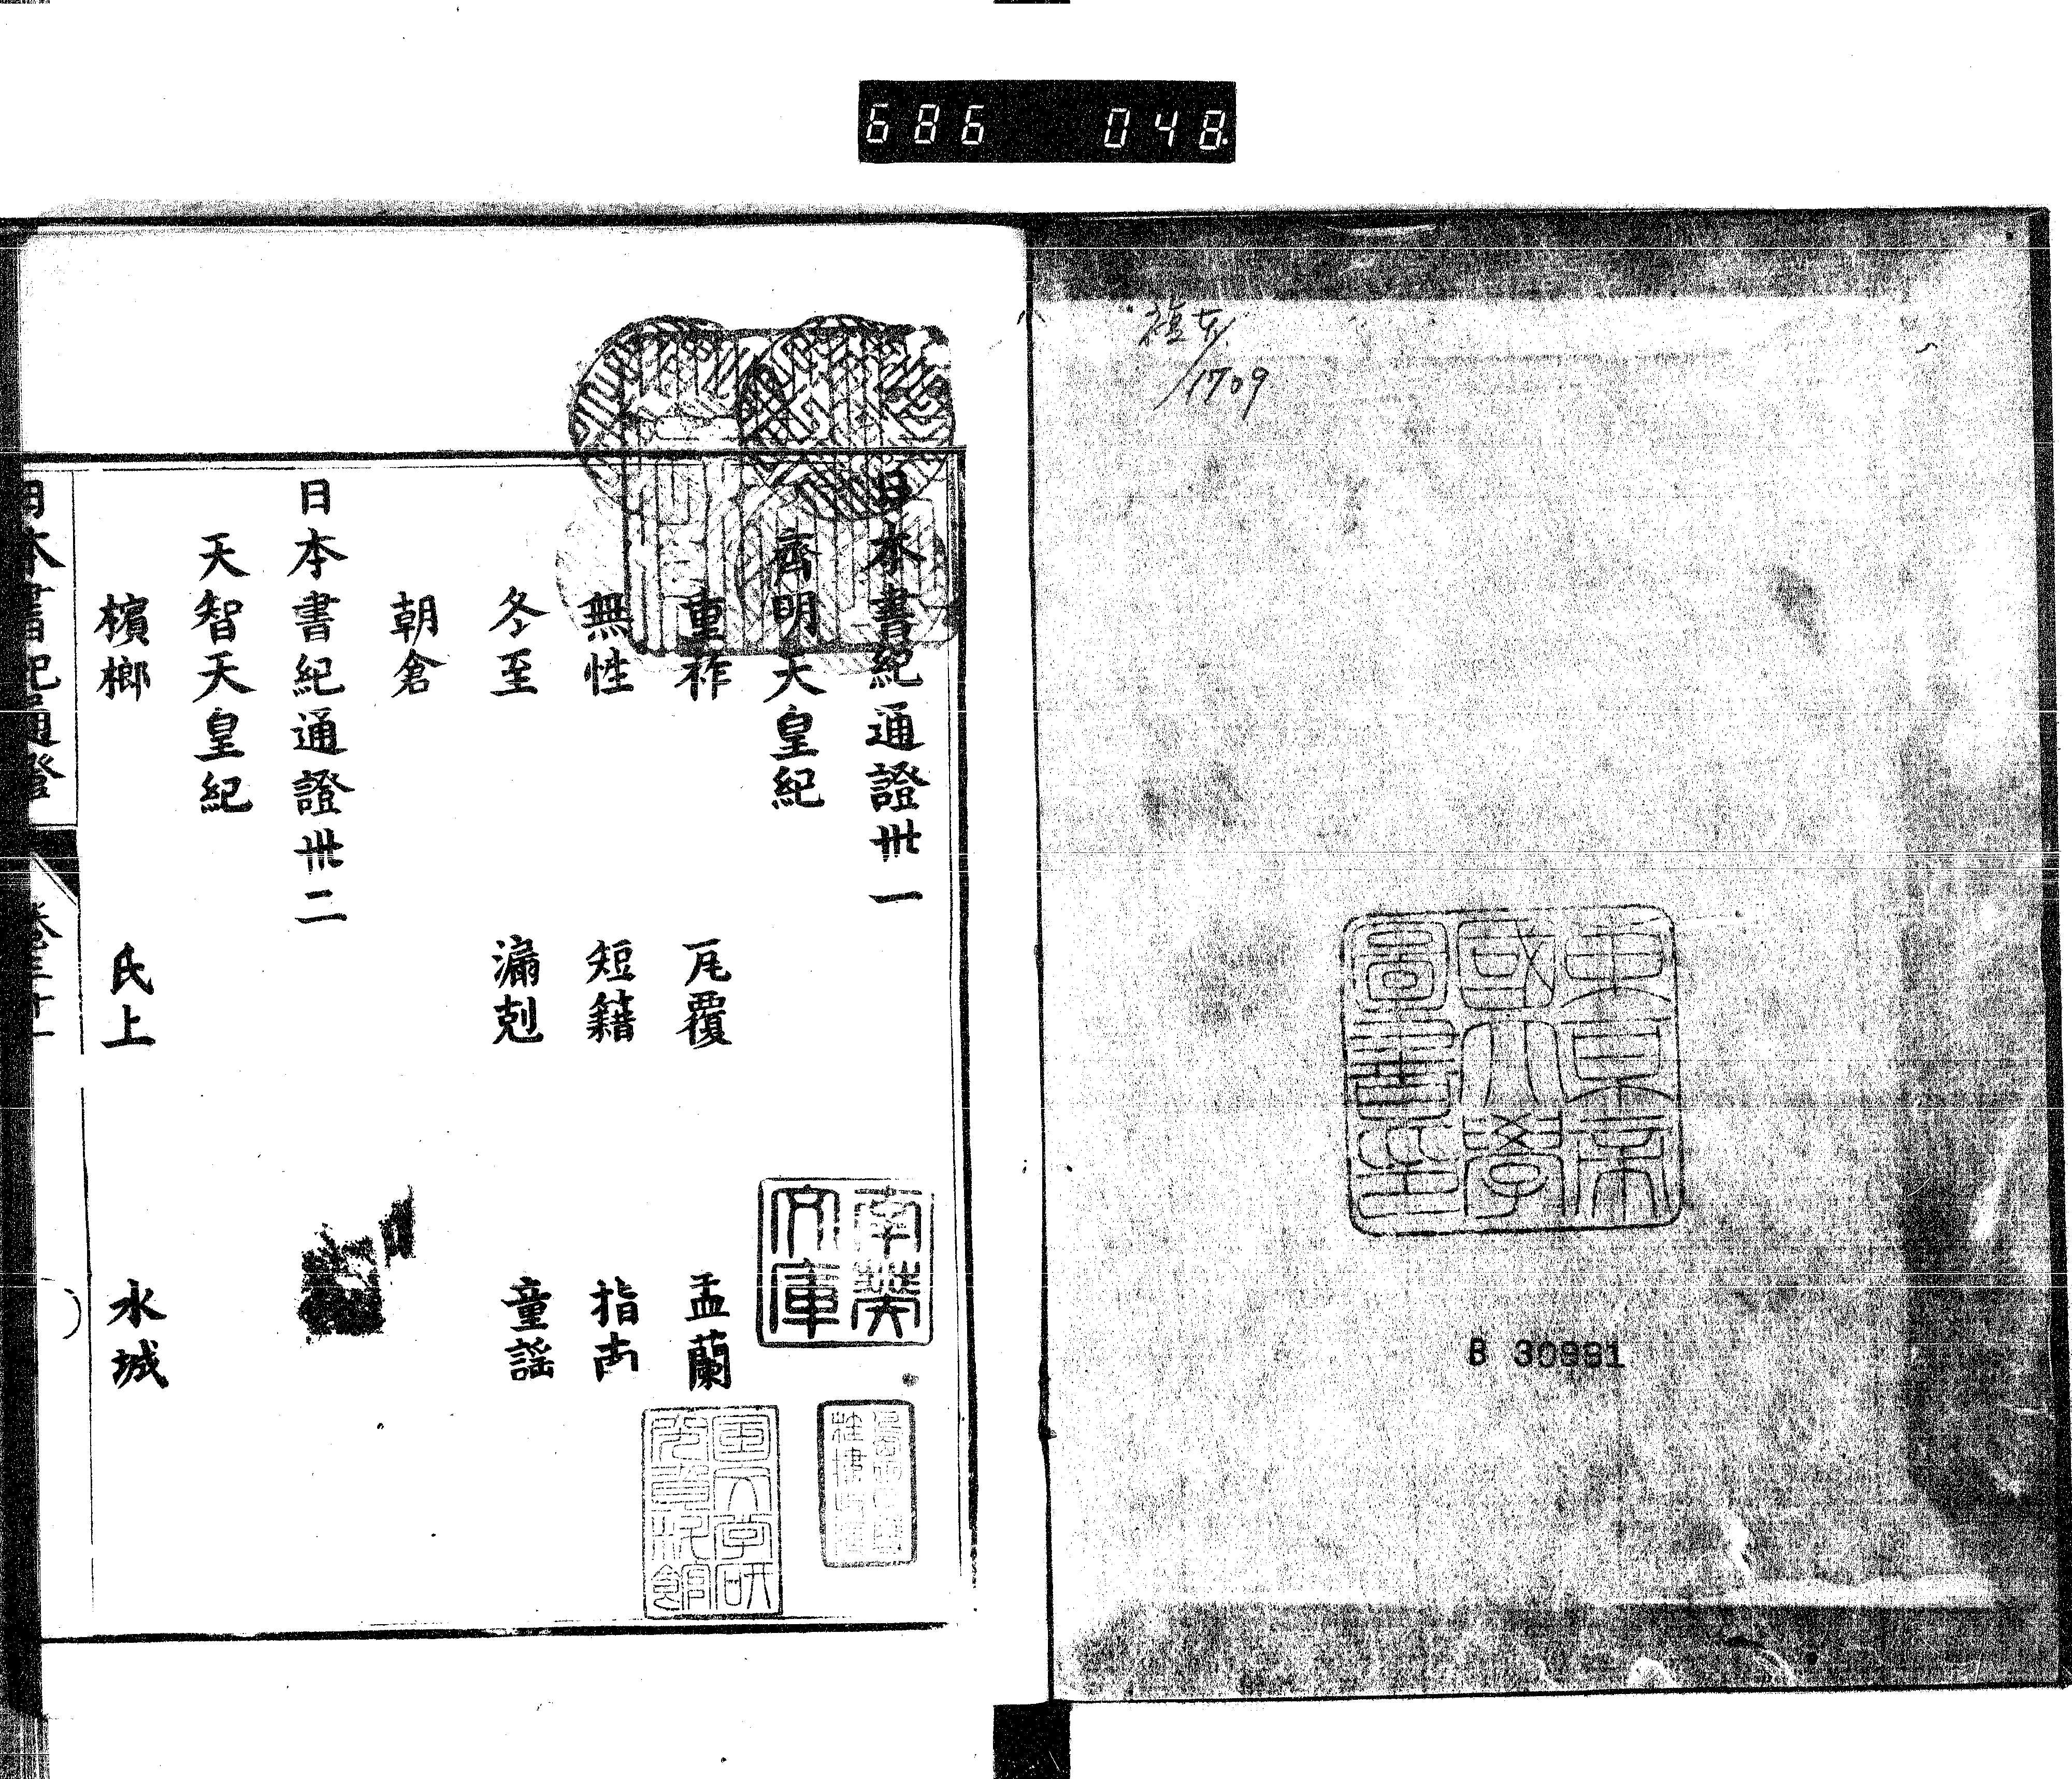 686 048
1709
東京帝
國大學
圖書印
B 30981
日本書紀通證卅一
齊明天皇紀
重祚 瓦覆 盂蘭
無性 短籍 指南
冬至 漏剋 童謡
朝倉
日本書紀通證卅二
天智天皇紀
檳榔 氏上 水城
日本書紀通證 卷三十一
南葵
文庫
国文学研
究資料館